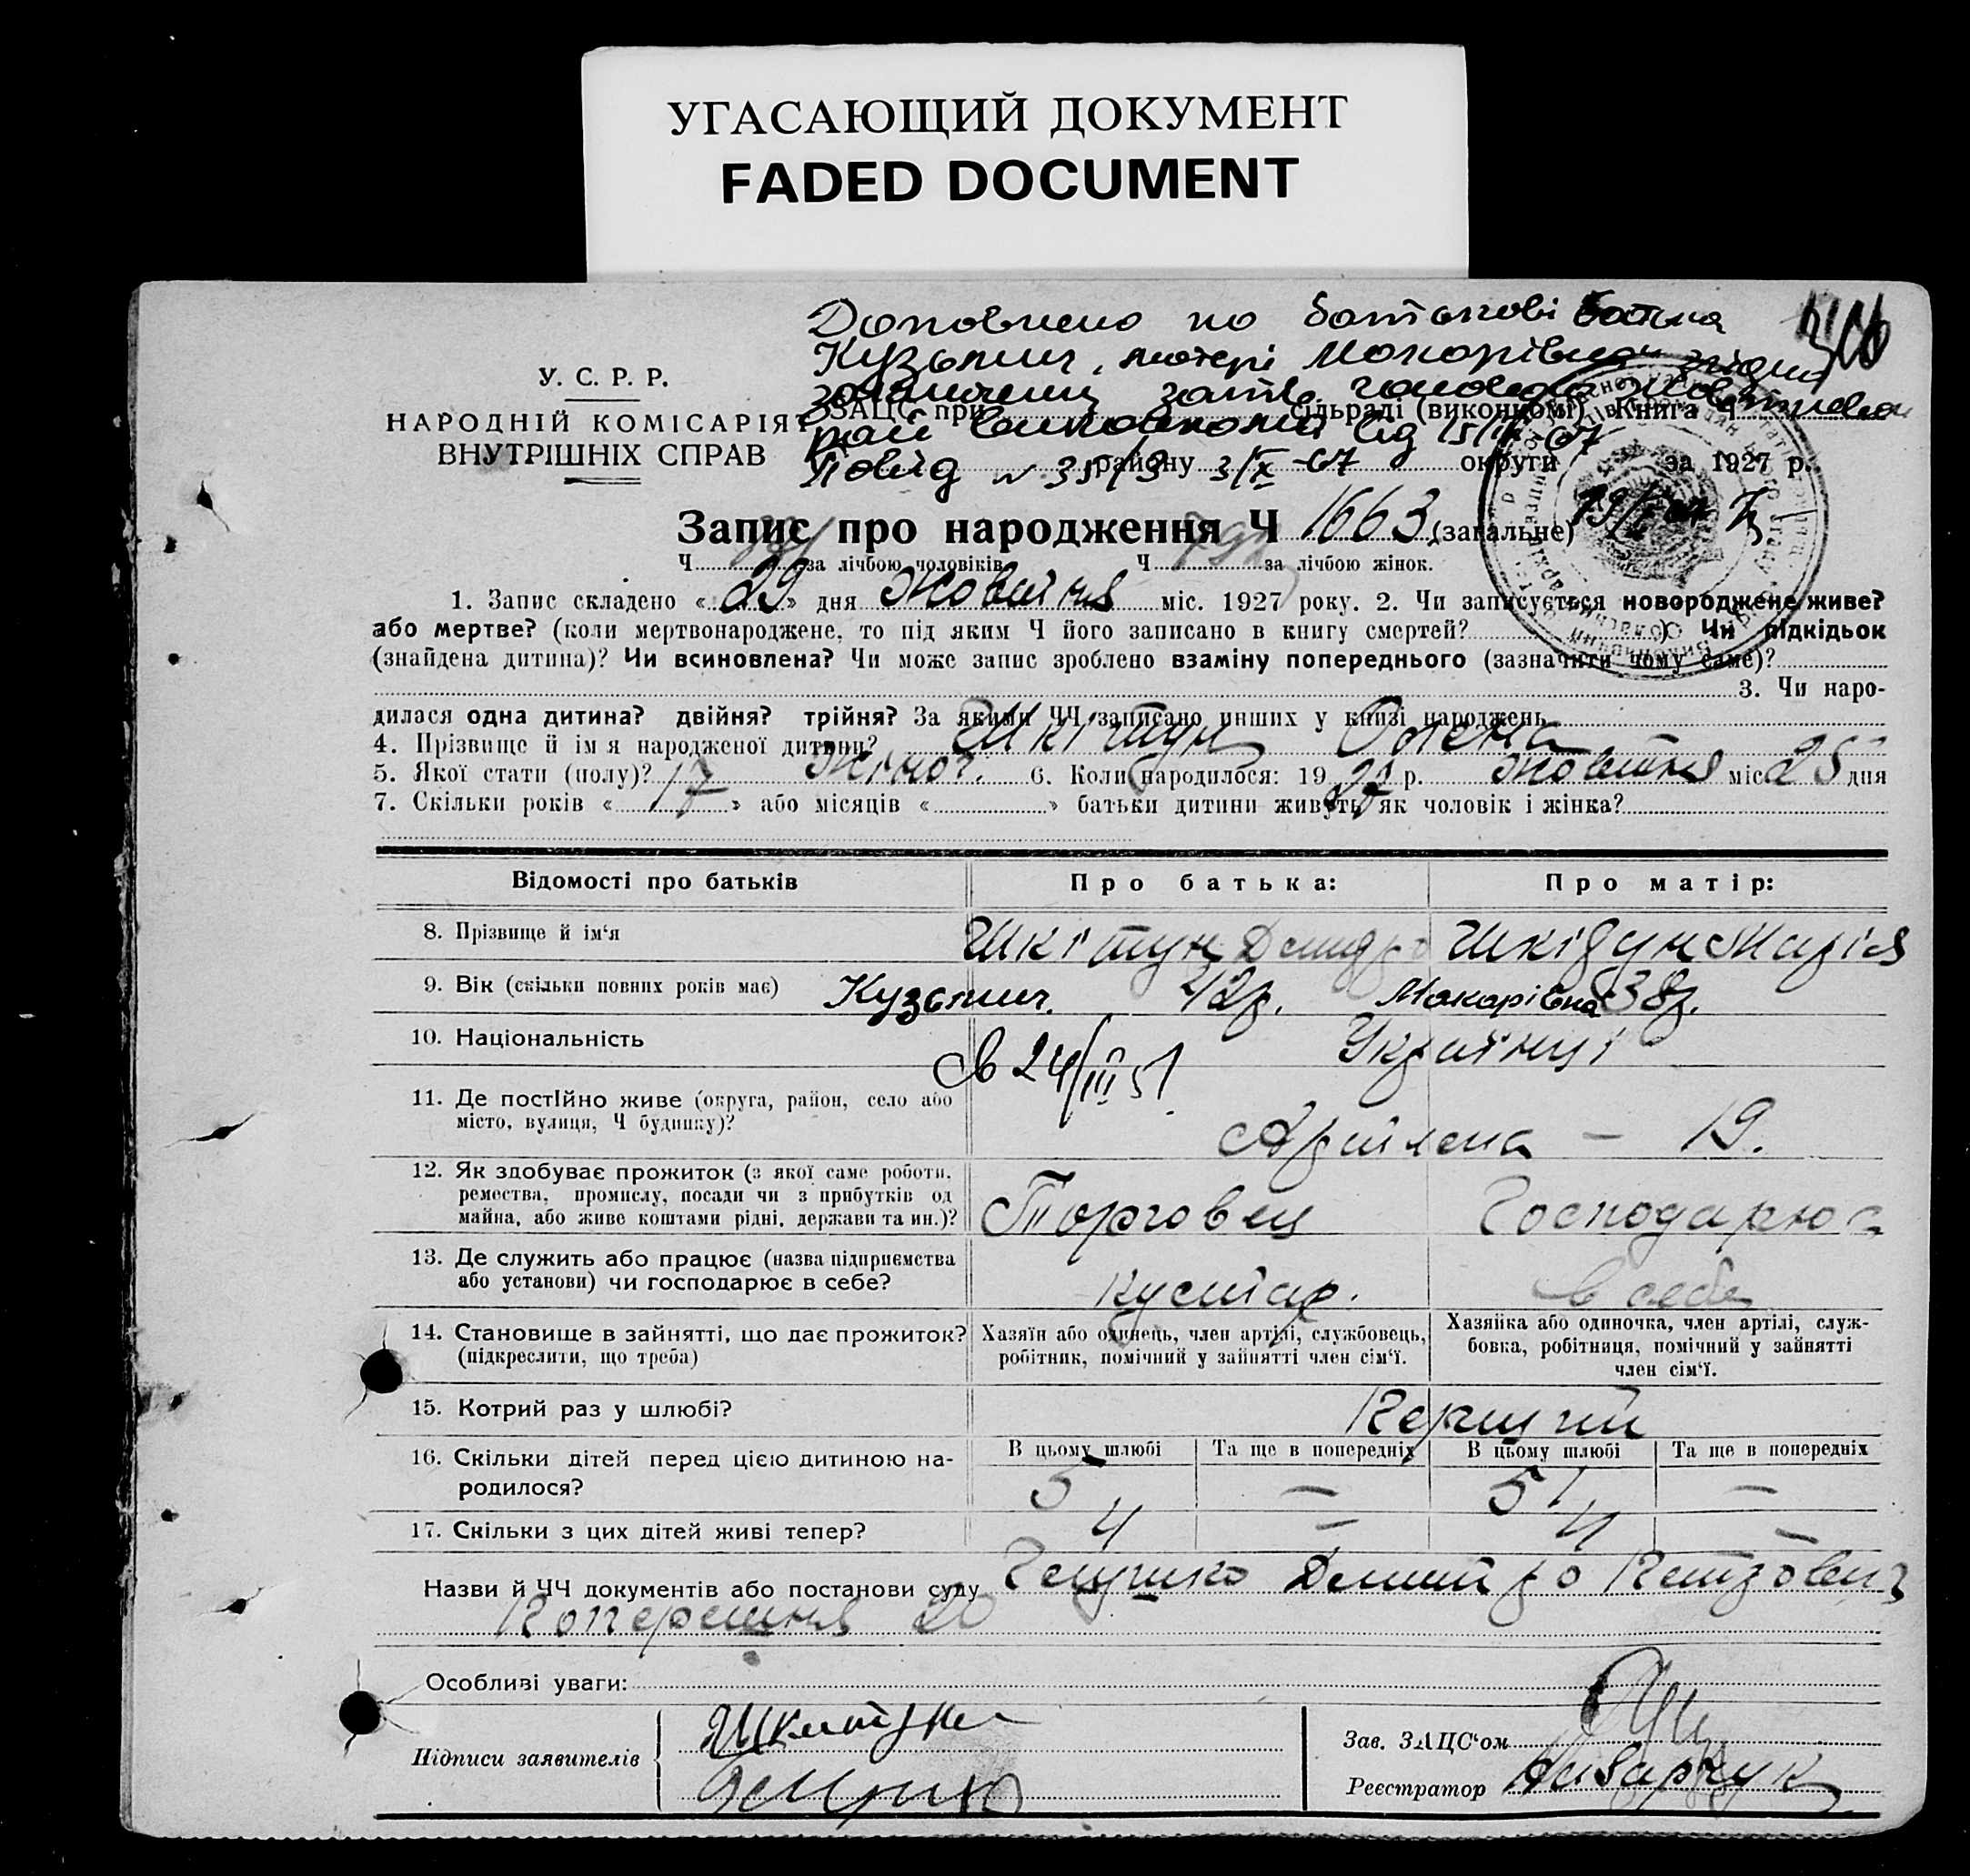 УГАСАЮЩИЙ ДОКУМЕНТ
FADED DOCUMENT
Доповнено по батькові батька
Кузьмич, матері Макарівна згідно
У. С. Р. Р.
НАРОДНІЙ КОМІСАРІЯТ
ВНУТРІШНІХ СПРАВ
ЗАЦС при сільраді (виконкомі) Книга Ч
рай виконкому від
Повід № 35/3 3/X-67 району округи за 1927 р.
Запис про народження Ч 1663 (загальне)
Ч за лічбою чоловіків Ч за лічбою жінок.
1. Запис складено « 29 » дня Жовтня міс. 1927 року. 2. Чи записується новороджене живе?
або мертве? (коли мертвонароджене, то під яким Ч його записано в книгу смертей? ) Чи підкідьок
(знайдена дитина)? Чи всиновлена? Чи може запис зроблено взаміну попереднього (зазначити чому саме)?
3. Чи наро-
дилася одна дитина? двійня? трійня? За якими ЧЧ записано инших у книзі народжень
4. Прізвище й ім я народженої дитини? Шкітун Олена
5. Якої стати (полу)? жіноч. 6. Коли народилося: 1927 р. жовтня міс 25 дня
7. Скільки років « 17 » або місяців « » батьки дитини живуть як чоловік і жінка?
Відомості про батьків Про батька: Про матір:
8. Прізвище й ім‘я Шкітун Шкідун Марія
9. Вік (скільки повних років має) Кузьмич. 42р. Макарівна 38р.
10. Національність Українці
в 24/III 51
11. Де постІйно живе (округа, район, село або
місто, вулиця, Ч будинку)? 19.
12. Як здобуває прожиток (з якої саме роботи,
ремества, промислу, посади чи з прибутків од
майна, або живе коштами рідні, держави та ин.)? Торговец Господарює
13. Де служить або працює (назва підприємства
або установи) чи господарює в себе? кустар. в себе
14. Становище в зайнятті, що дає прожиток?
(підкреслити, що треба)
Хазяїн або одинець, член артілі, службовець,
робітник, помічний у зайнятті член сім‘ї.
Хазяйка або одиночка, член артілі, служ-
бовка, робітниця, помічний у зайнятті
член сім‘ї.
15. Котрий раз у шлюбі? Перший
В цьому шлюбі Та ще в попередніх В цьому шлюбі Та ще в попередніх
16. Скільки дітей перед цією дитиною на-
родилося? 5 — 5 —
17. Скільки з цих дітей живі тепер? 4 — 4 —
Назви й ЧЧ документів або постанови суду Дмитро Петрович
20
Особливі уваги:
Підписи заявителів
Зав. ЗАЦС‘ом
Реєстратор